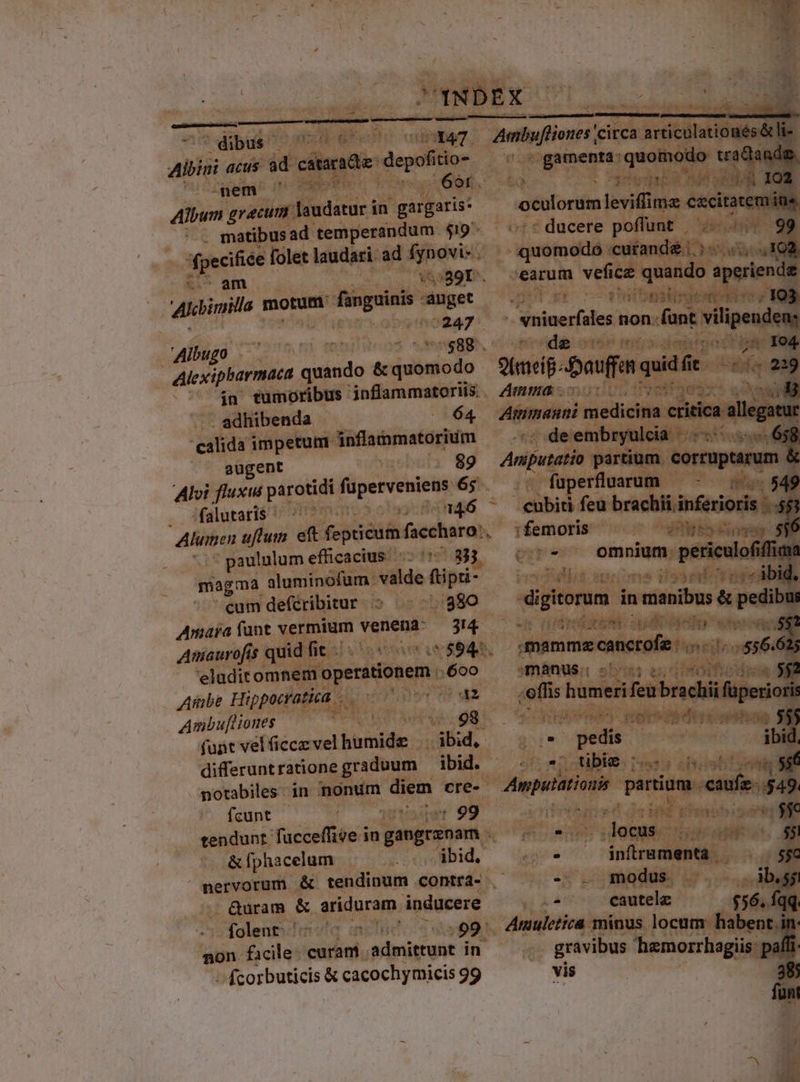 INDEX
dibus 147
Albini acus ad cataractæ depoſitio-
nem 601
Album græcum laudatur in gargaris-
matibus ad temperandum 519
ſpecifice ſolet laudari ad ſynovi-
am 391
Alchimilla motum ſanguinis auget
247
Albugo 588
Alexipharmaca quando & quomodo
in tumoribus inflammatoriis
adhibenda 64
calida impetum inflammatorium
augent 89
Alvi fluxus parotidi ſuperveniens 65
ſalutaris 146
Alumen uſtum eſt ſepticum ſaccharo
paululum efficacius 333
magma aluminoſum valde ſtipti-
cum deſcribitur 380
Amara ſunt vermium venena 314
Amauroſis quid ſit 594
eludit omnem operationem 600
Ambe Hippocratica 42
Ambuſtiones 98
ſunt vel ſiccæ vel humidæ ibid,
differunt ratione graduum ibid.
notabiles in nonum diem cre-
ſcunt 99
tendunt ſucceſſive in gangrænam
& ſphacelum ibid,
nervorum & tendinum contra-
cturam & ariduram inducere
ſolent 99
non facile curam admittunt in
ſcorbuticis & cacochymicis 99
Ambuſtiones circa articulationes & li-
gamenta quomodo tractandæ
102
oculorum leviſſimæ cæcitatem in-
ducere poſſunt 99
quomodo curandæ 102
earum veſicæ quando aperiendæ
103
vniuerſales non ſunt vilipenden-
dæ 104
Ameiß-Hauffen quid ſit 229
Amma 13
Ammanni medicina critica allegatur
de embryulcia 658
Amputatio partium corruptarum &
ſuperfluarum 549
cubiti ſeu brachii inferioris 553
femoris 556
- omnium periculoſiſſima
ibid,
digitorum in manibus & pedibus
552
mammæ cancroſæ 556.625
manus 552
oſſis humeri ſeu brachii ſuperioris
555
- pedis ibid,
- tibiæ 556
Amputationis partium cauſæ 549.
55c
- locus 551
- inſtrumenta 55c
- modus ib.551
- cautelæ 556, ſqq.
Amuletica minus locum habent in
gravibus hæmorrhagiis paſſi-
vis 385
ſunt